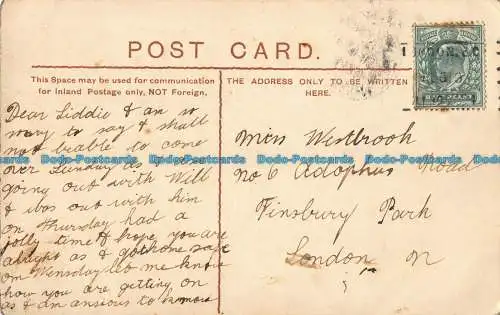 POST CARD.
This Space may be used for communication
for Inland Postage only, NOT Foreign.
THE ADDRESS ONLY TO BE WRITTEN
HERE.
Dear Liddie I am so
sorry to say I shall
not be able to come
over Sunday as I am
going out with Will
I was out with him
on Thursday had a
jolly time I hope you are
alright as I got home safe
on Wensday let me know
how you are getting on
as I am ansious to know
Miss Westbrook
no 6 Adolphus Road
Finsbury Park
London N
Dodo-Postcards Dodo-Postcards Dodo-Postcards Dodo-Postcards
Dodo-Postcards Dodo-Postcards Dodo-Postcards Dodo-Postcards